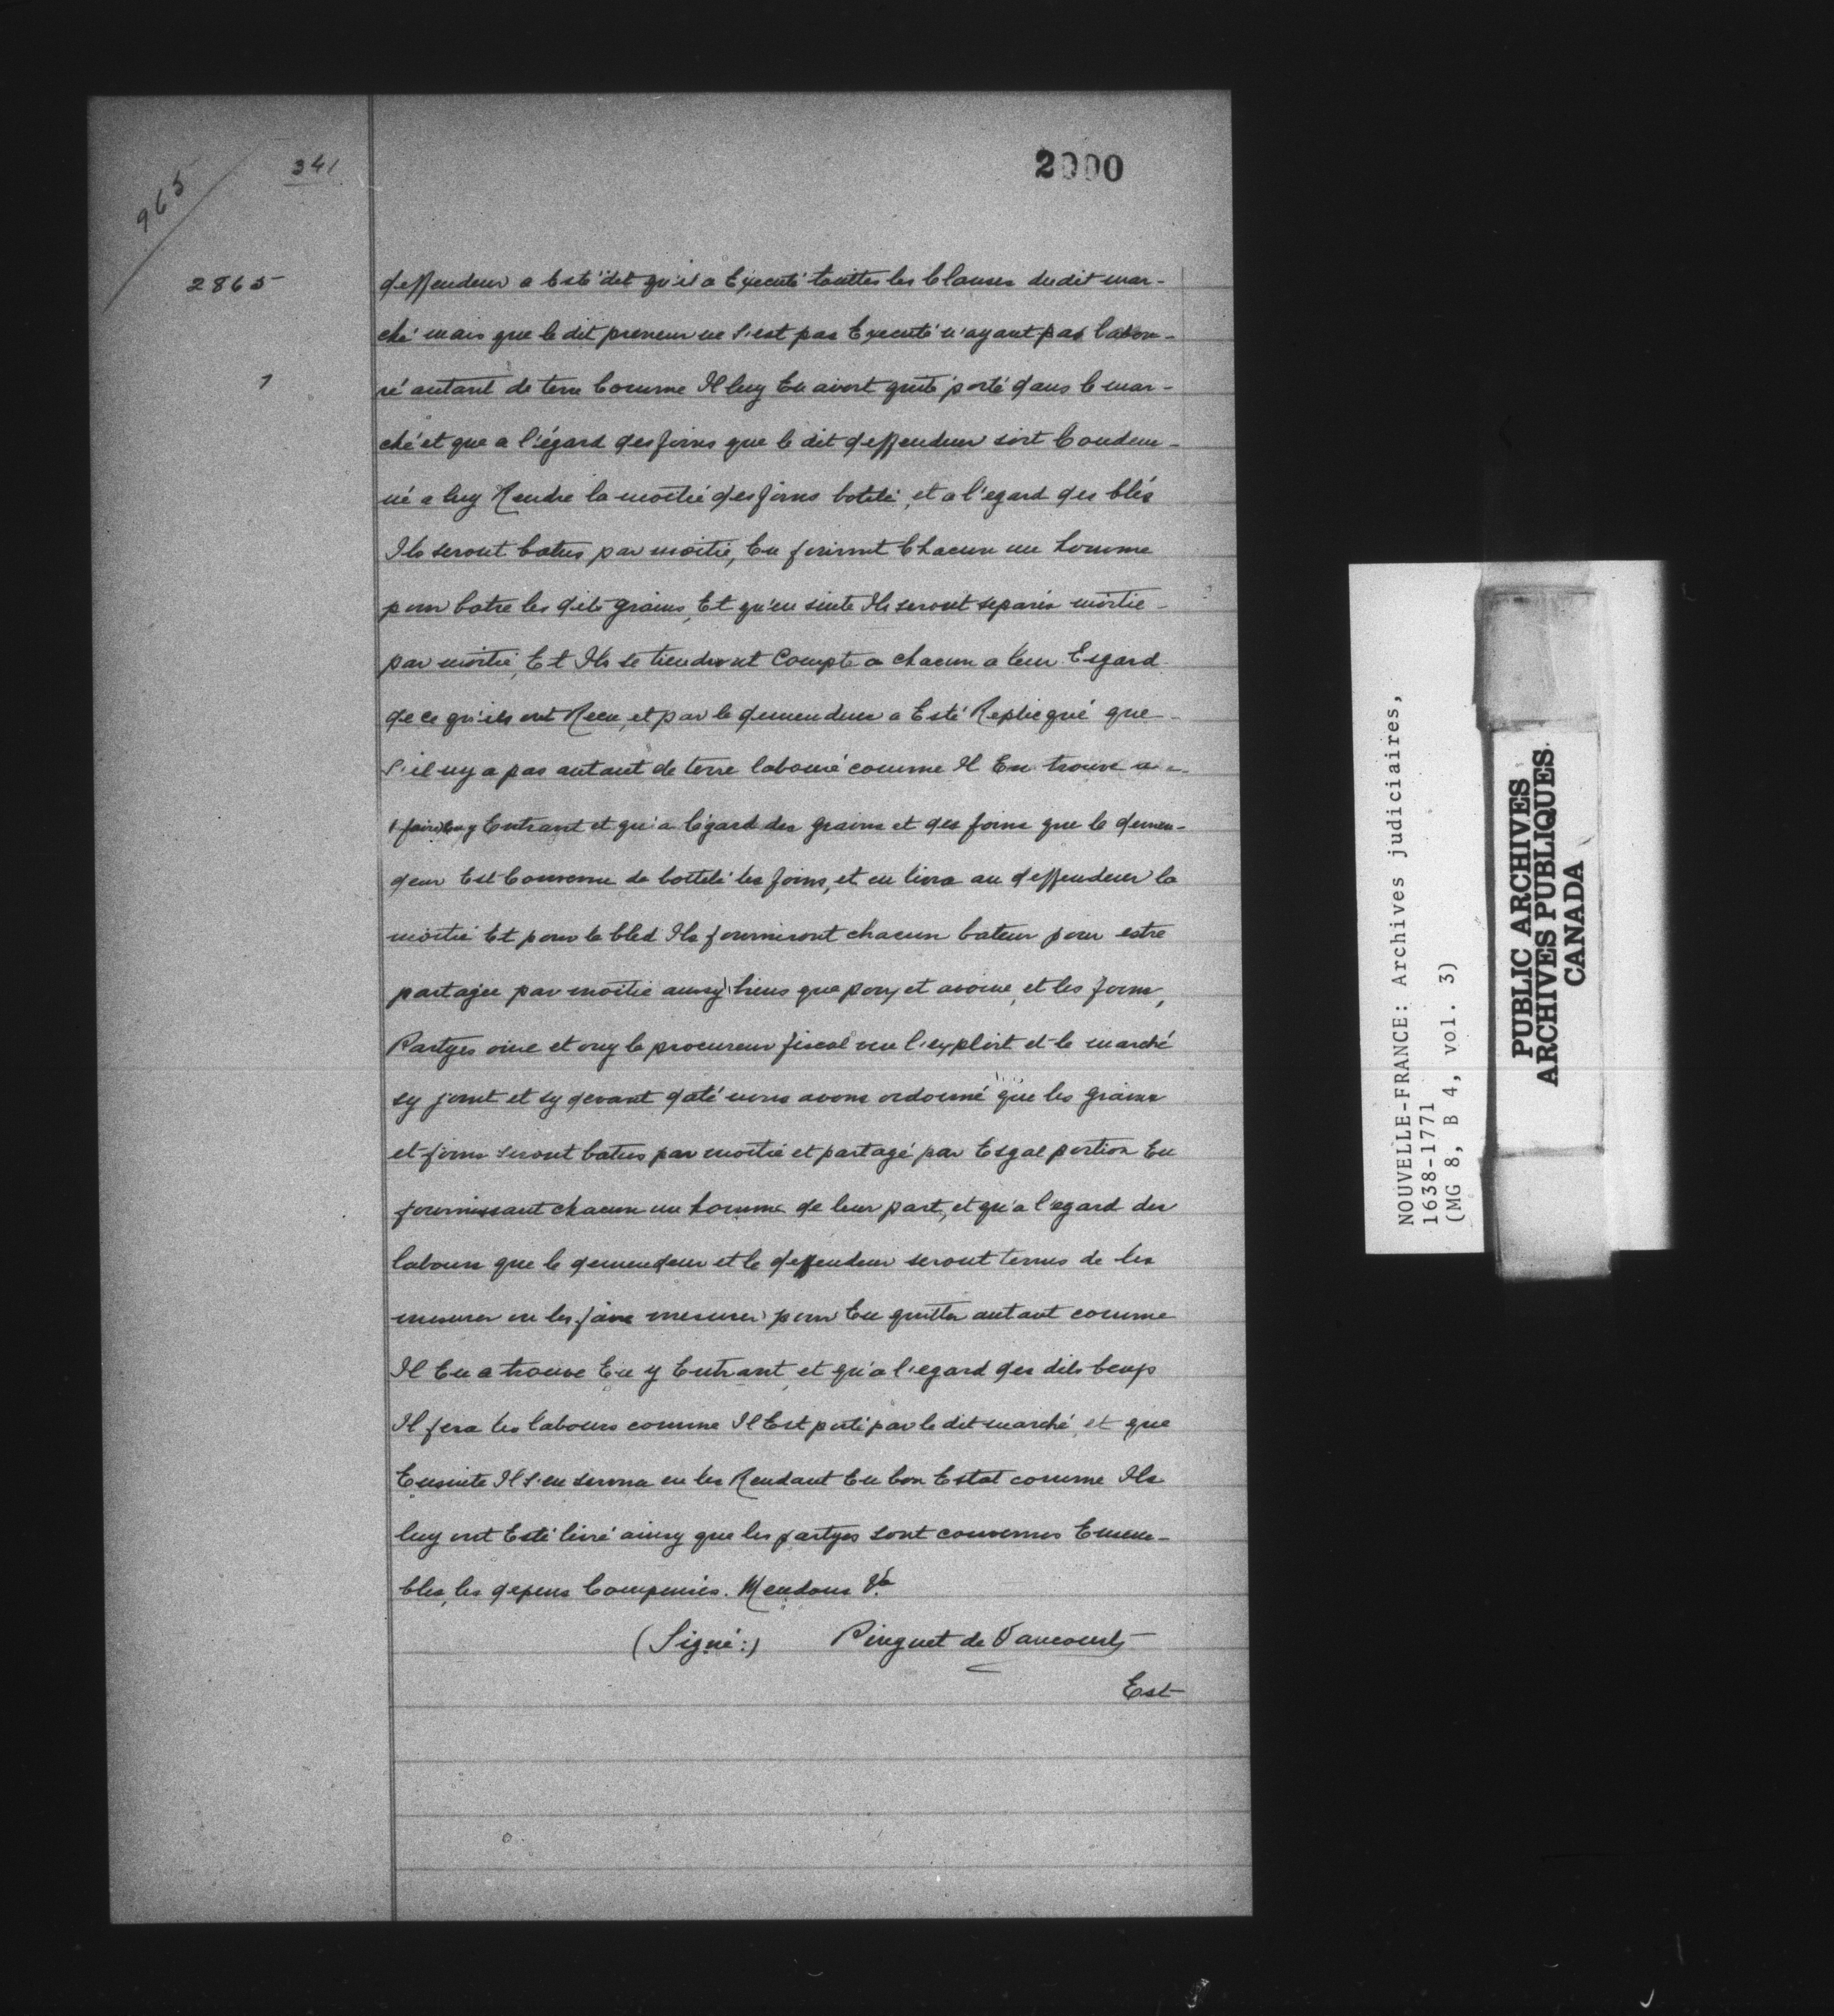 965
341
2000
2865
deffendeur a Esté dit qu'il a Executé touttes les Clauses dudit mar-
ché mais que le dit preneur ne s'est pas Executé n'ayant pas labou-
1
ré autant de terre Comme Il luy En avoit porté dans le mar-
ché et que a l'égard des foins que le dit deffendeur soit Condem-
né a luy Rendre la moitié des foins botelé, et a l'egard des blés
Ils seront batus par moitié, En Chacun un homme
pour batre les dits grains, Et qu'en suite Ils seront séparés moitié
par moitié, Et Ils se tiendront Compte a chacun a leur Esgard
de ce qu'ils ont Receu, et par le demendeur a Esté Replicqué que
S'il ny a pas autant de terre labouré comme Il En trouve
Entrant et qu'a l'égard des grains et des foins que le demen-
deur Est Convenu de bottelé les foins, et en livra au deffendeur la
moitié Et pour le bled Ils fourniront chacun bateur pour estre
partagée par moitié aussy biens que poix et avoine, et les foins,
Partyes ouie et ouy le procureur fiscal veu l'exploit et le marché
sy joint et sy devant daté nous avons ordonné que les grains
et foins seront batus par moitié et partagé par Esgal portion En
fournissant chacun un homme de leur part, et qu'a l'egard des
labours que le demendeur et le deffendeur seront tenus de les
mesurer ou les faire mesurer pour En quitter autant comme
Il En a trouvé En y Entrant, et qu'a l'egard des dits beufs
Il fera les labours comme Il Est porté par le dit marché, et que
Ensuite Il s'en servira en les Rendant En bon Estat comme Ils
luy ont Esté livré ainsy que les partyes sont convenus Ensem-
bles, les depens Compensés. Mendons &a
(Signé:) Pinguet de Vaucourt
Est
NOUVELLE-FRANCE: Archives judiciaires,
1638-1771
(MG 8, B 4, vol. 3)
PUBLIC ARCHIVES
ARCHIVES PUBLIQUES
CANADA